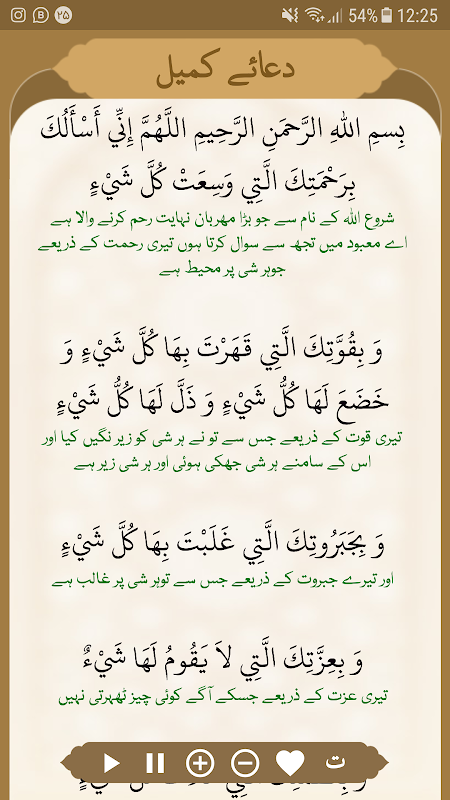 ۲۵ 54% 12:25
دعائے کمیل
بِسمِ اللهِ الرَّحمَنِ الرَّحِيمِ اللَّهُمَّ إِنِّي أَسْأَلُكَ
بِرَحْمَتِكَ الَّتِي وَسِعَتْ كُلَّ شَيْءٍ
شروع الله کے نام سے جو بڑا مهربان نہایت رحم کرنے والا ہے
اے معبود میں تجھ سے سوال کرتا ہوں تیری رحمت کے ذریعے
جوہر شی پر محیط ہے
وَ بِقُوَّتِكَ الَّتِي قَهَرْتَ بِهَا كُلَّ شَيْءٍ وَ
خَضَعَ لَهَا كُلُّ شَيْءٍ وَ ذَلَّ لَهَا كُلُّ شَيْءٍ
تیری قوت کے ذریعے جس سے تو نے ہر شی کو زیر نگیں کیا اور
اس کے سامنے ہر شی جھکی ہوئی اور ہر شی زیر ہے
وَ بِجَبَرُوتِكَ الَّتِي غَلَبْتَ بِهَا كُلَّ شَيْءٍ
اور تیرے جبروت کے ذریعے جس سے توہر شی پر غالب ہے
وَ بِعِزَّتِكَ الَّتِي لاَ يَقُومُ لَهَا شَيْءٌ
تیری عزت کے ذریعے جسکے آگے کوئی چیز ٹھہرتی نہیں
ت